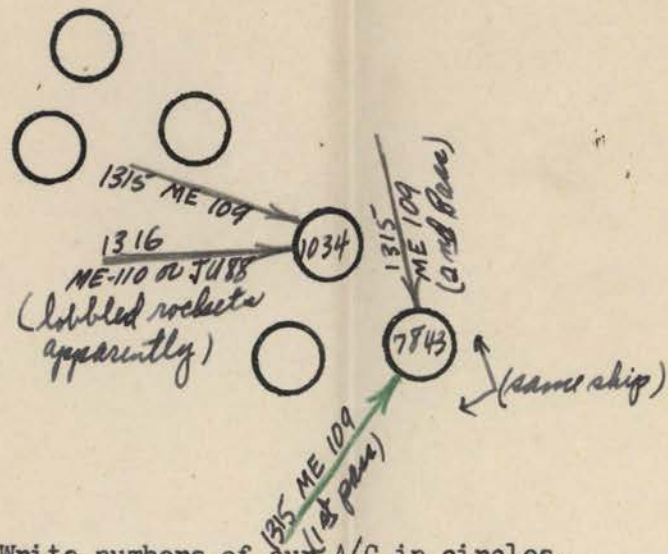 1315 ME 109
1316
ME-110 or JU88
(lobbled rockets
apparently)
1034
1315
ME 109
(2nd Pass)
7843
(same ship)
1315 ME 109
(1st pass)
Write numbers of our A/C in circles